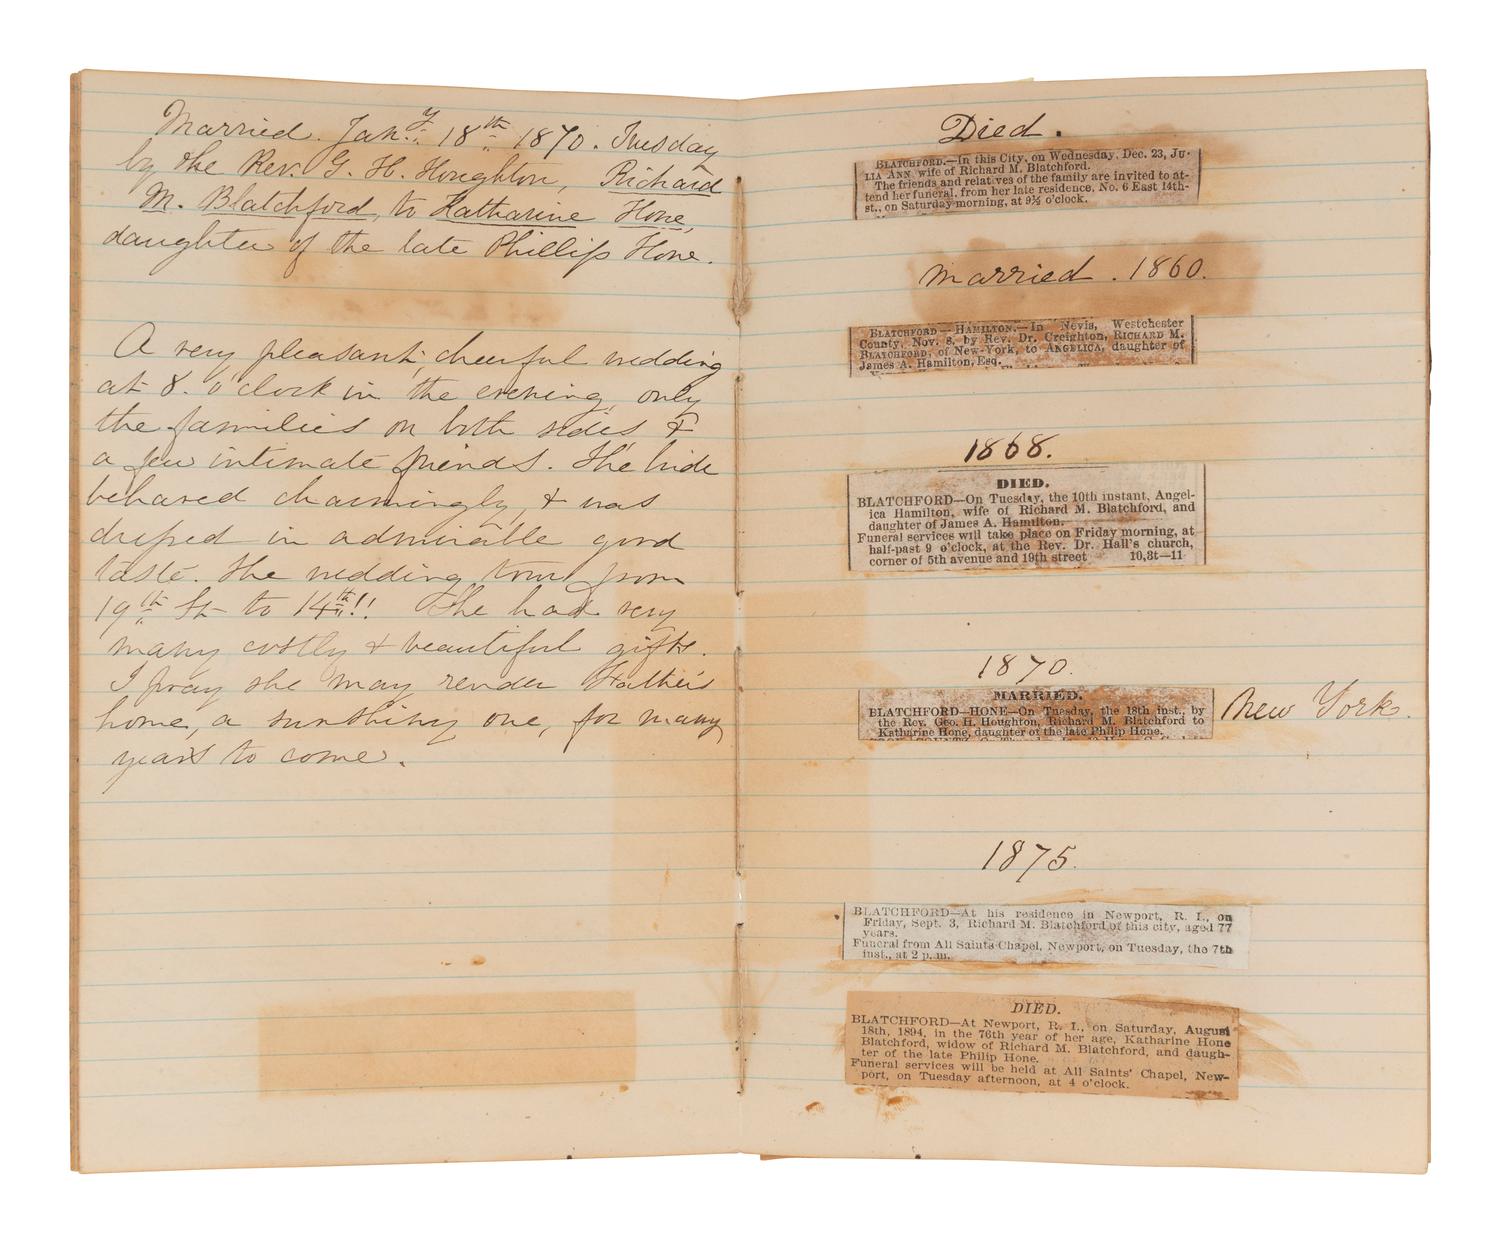 Married. Jan.y 18th 1870. Tuesday
by the Rev. G. H. Houghton, Richard
M. Blatchford, to Katharine Hone,
daughter of the late Phillip Hone.
A very pleasant, cheerful wedding
at 8. o'clock in the evening, only
the families on both sides &
a few intimate friends. The bride
behaved charmingly, & was
dressed in admirable good
taste. The wedding tour from
19th St to 14th!! She had very
many costly & beautiful gifts.
I pray she may render Father's
home, a sunshiny one, for many
years to come.
Died.
BLATCHFORD.—In this City, on Wednesday, Dec. 23, JU-
LIA ANN, wife of Richard M. Blatchford.
The friends and relatives of the family are invited to at-
tend her funeral, from her late residence, No. 6 East 14th-
st., on Saturday morning, at 9½ o'clock.
Married. 1860.
BLATCHFORD—HAMILTON.—In Nevis, Westchester
County, Nov. 8, by Rev. Dr. Creighton, RICHARD M.
BLATCHFORD, of New-York, to ANGELICA, daughter of
James A. Hamilton, Esq.
1868.
DIED.
BLATCHFORD—On Tuesday, the 10th instant, Angel-
ica Hamilton, wife of Richard M. Blatchford, and
daughter of James A. Hamilton.
Funeral services will take place on Friday morning, at
half-past 9 o'clock, at the Rev. Dr. Hall's church,
corner of 5th avenue and 19th street 10,3t—11
1870.
MARRIED.
BLATCHFORD—HONE—On Tuesday, the 18th inst., by
the Rev. Geo. H. Houghton, Richard M. Blatchford to
Katharine Hone, daughter of the late Philip Hone.
New York.
1875.
BLATCHFORD—At his residence in Newport, R. I., on
Friday, Sept. 3, Richard M. Blatchford of this city, aged 77
years.
Funeral from All Saints Chapel, Newport, on Tuesday, the 7th
inst., at 2 p.m.
DIED.
BLATCHFORD—At Newport, R. I., on Saturday, August
18th, 1894, in the 76th year of her age, Katharine Hone
Blatchford, widow of Richard M. Blatchford, and daugh-
ter of the late Philip Hone.
Funeral services will be held at All Saints' Chapel, New-
port, on Tuesday afternoon, at 4 o'clock.